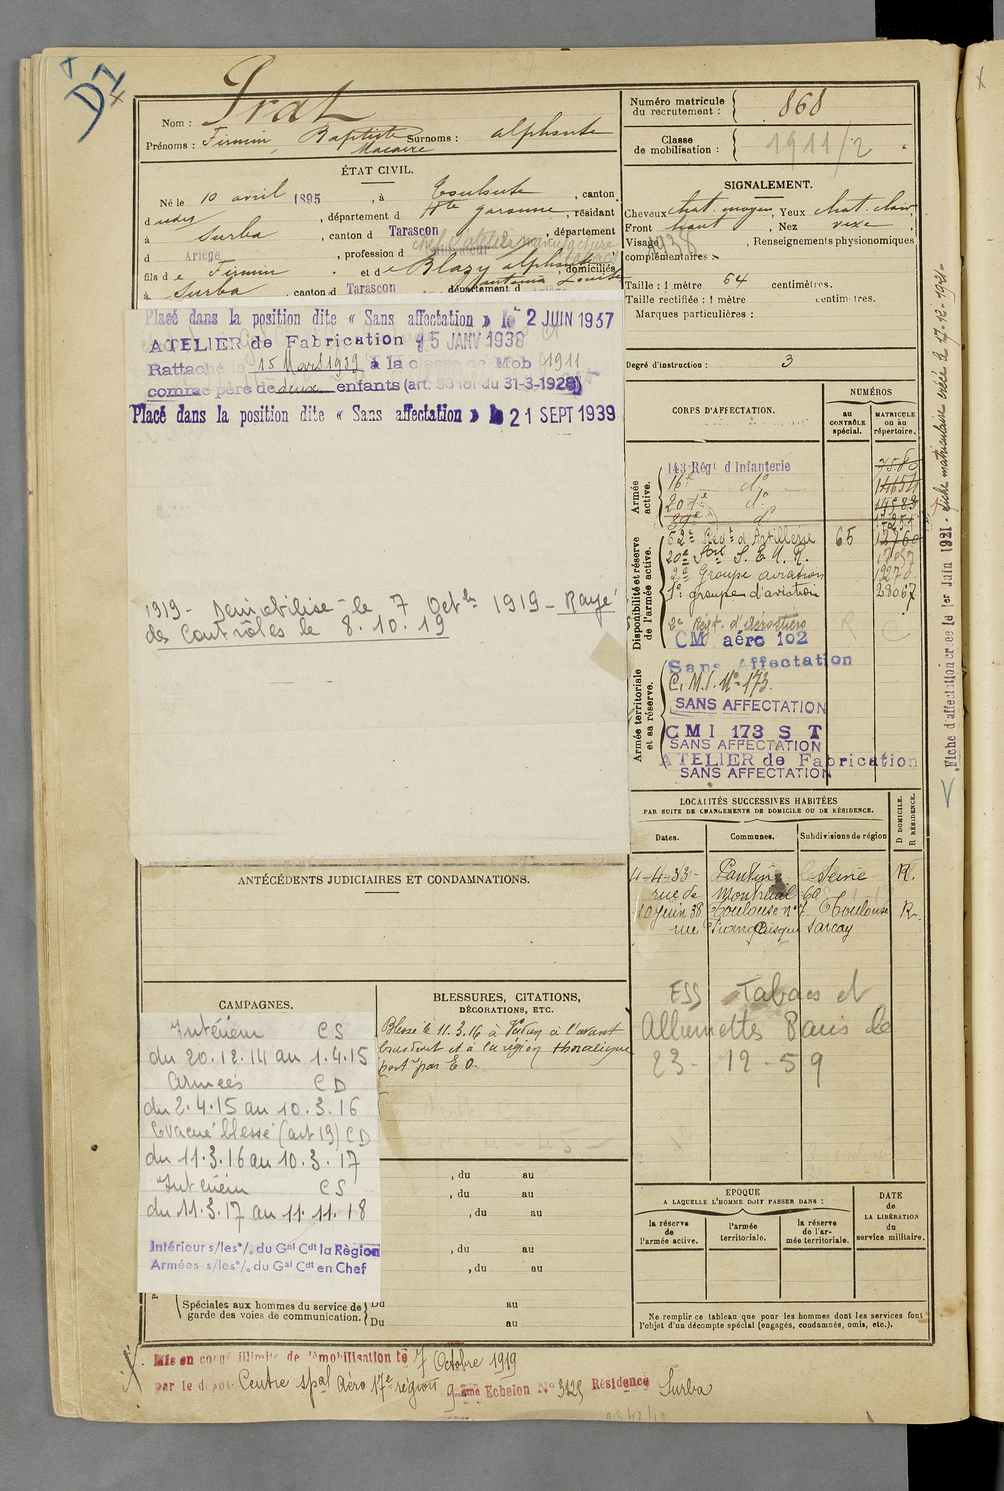 D1
Nom : Prat
Prénoms : Firmin, Baptiste Macaire Surnoms : alphonse
Numéro matricule du recrutement : 868
Classe de mobilisation : 1911/2
ÉTAT CIVIL.
Né le 10 avril 1895, à Toulouse, canton
d udes, département d Hte garonne, résidant
à Surba, canton d Tarascon, département
d Ariège, profession d
fils d e Firmin et d e Blazy alphonsine Antonia Louise, domiciliés
à Surba, canton d Tarascon, département d
SIGNALEMENT.
Cheveux chat. moyen, Yeux chat. clair,
Front haut, Nez vexe,
Visage, Renseignements physionomiques
complémentaires :
1938
Taille : 1 mètre 64 centimètres.
Taille rectifiée : 1 mètre centimètres.
Marques particulières :
Degré d'instruction : 3
Placé dans la position dite « Sans affectation » le 2 JUIN 1937
ATELIER de Fabrication 15 JANV 1938
Rattaché le 15 Mars 1939 à la classe de Mob 1911
comme père de deux enfants (art. 58 loi du 31-3-1928)
Placé dans la position dite « Sans affectation » le 21 SEPT 1939
1919 - Demobilisé - le 7 Octbre 1919 - Rayé
des Contrôles le 8.10.19
CORPS D'AFFECTATION.
NUMÉROS
au CONTRÔLE spécial.
MATRICULE ou au répertoire.
Armée active.
143 Régt d'Infanterie 7580
16e do
20e do
do
Disponibilité et réserve de l'armée active.
62e Régt d'Artillerie 65 12760
20e
2e Groupe aviation
1er groupe d'aviation 23067
2e Régt. d'Aérostiers
CM aéro 102
Armée territoriale et sa réserve.
Sans Affectation
C.M.I. No 173.
SANS AFFECTATION
CMI 173 S T
SANS AFFECTATION
ATELIER de Fabrication
SANS AFFECTATION
Fiche d'affectation créée le 1er Juin 1921. fiche matriculaire créée le 17-12-1921-
LOCALITÉS SUCCESSIVES HABITÉES
PAR SUITE DE CHANGEMENTS DE DOMICILE OU DE RÉSIDENCE.
D DOMICILE. R RÉSIDENCE.
Dates. Communes. Subdivisions de région
4-4-33- Pantin Seine R.
rue de Montreuil 60
10 Juin 38 Toulouse no 7 Toulouse R.
rue Francisque Sarcey
ESS Tabacs et
Allumettes Paris le
23-12-59
ANTÉCÉDENTS JUDICIAIRES ET CONDAMNATIONS.
CAMPAGNES.
Intérieur CS
du 20.12.14 au 1.4.15
Armées CD
du 2.4.15 au 10.3.16
Evacué blessé (art 19) CD
du 11.3.16 au 10.3.17
Intérieur CS
du 11.3.17 au 11.11.18
Intérieur s/les °/. du Gal Cdt la Région
Armées s/les °/. du Gal Cdt en Chef
BLESSURES, CITATIONS,
DÉCORATIONS, ETC.
Blessé le 11.3.16 à Verdun à l'avant
bras droit et à la région thoracique
postre par E O.
, du au
, du au
, du au
, du au
, du au
Spéciales aux hommes du service de garde des voies de communication.
Du au
Du au
EPOQUE
A LAQUELLE L'HOMME DOIT PASSER DANS :
la réserve de l'armée active.
l'armée territoriale.
la réserve de l'armée territoriale.
DATE de LA LIBÉRATION du service militaire.
Ne remplir ce tableau que pour les hommes dont les services font
l'objet d'un décompte spécial (engagés, condamnés, omis, etc.).
Mis en congé illimité de démobilisation le 7 Octobre 1919
par le dépôt Centre spal Aéro 17e région 9ème Echelon No 3425 Résidence Surba